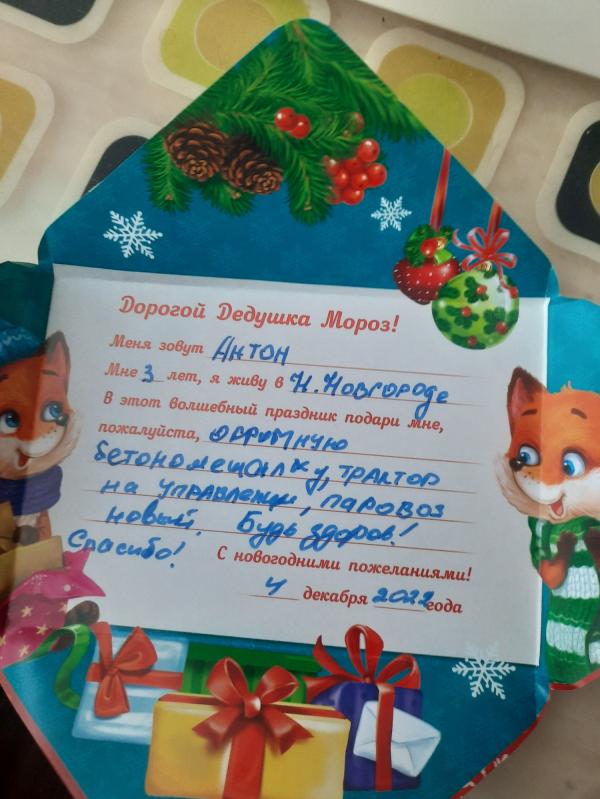 Дорогой Дедушка Мороз!
Меня зовут Антон
Мне 3 лет, я живу в Н.Новгороде
В этот волшебный праздник подари мне,
пожалуйста, огромную
бетономешалку, трактор
на управлении, паровоз
новый. Будь здоров!
Спасибо!
С новогодними пожеланиями!
4 декабря 2022 года